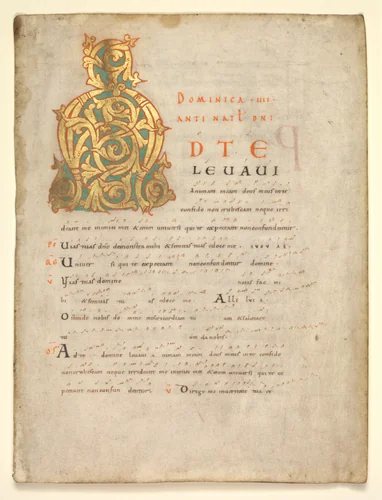 DOMINICA · IIII
ANTE NAT DNI
A
D TE
LEUAUI
Animam meam deus meus inte
confido non erubescam neque irri
deant me inimici mei &enim uniuersi qui te expectant nonconfundentur.
Uias tuas dne demonstra mihi &semitas tuas edoce me.
Uniuersi qui te expectant nonconfundentur domine
Uias tuas domine notas fac mi
hi &semitas tuas edoce me. Alleluia.
Ostende nobis domine misericordiam tuam &salutare
tuum da nobis.
Ad te domine leuaui animam meam deus meus inte confido
nonerubescam neque irrideant me inimici mei &enim uniuersi qui te ex
pectant nonconfundentur. Dirige me inueritate tua et